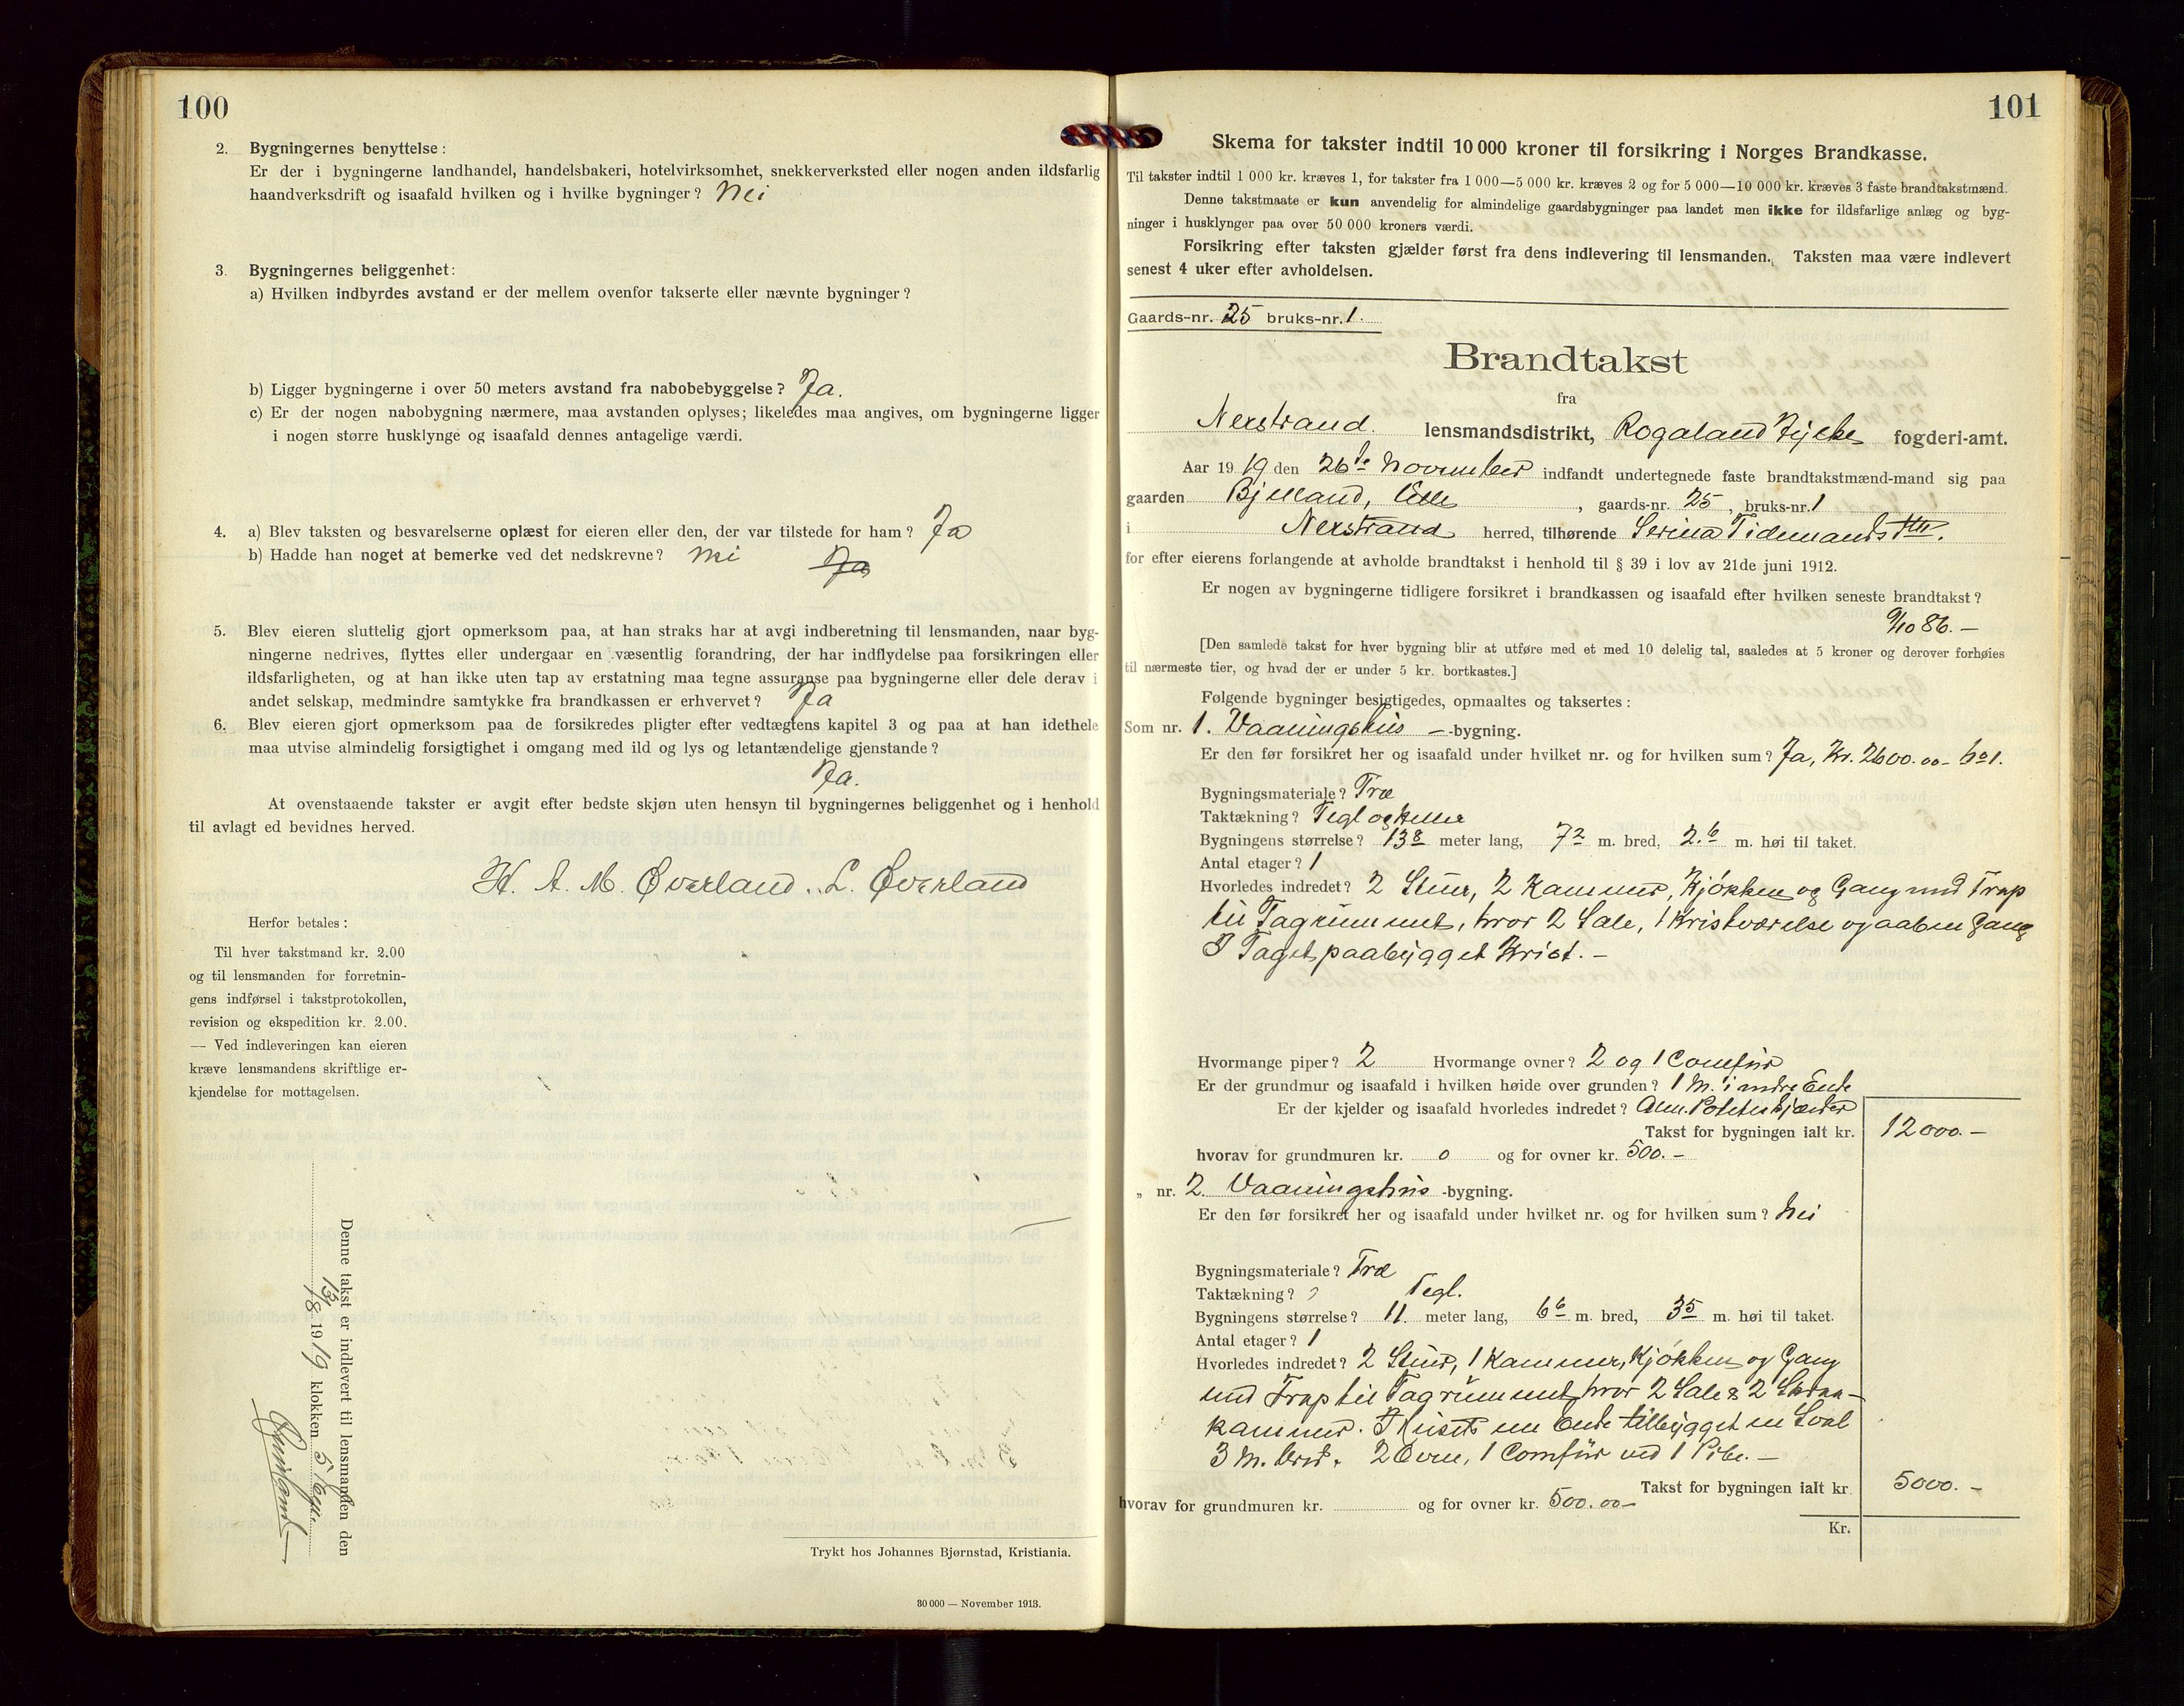 100
2. Bygningernes benyttelse:
Er der i bygningerne landhandel, handelsbakeri, hotelvirksomhet, snekkerverksted eller nogen anden ildsfarlig
haandverksdrift og isaafald hvilken og i hvilke bygninger? Nei
3. Bygningernes beliggenhet:
a) Hvilken indbyrdes avstand er der mellem ovenfor takserte eller nævnte bygninger?
b) Ligger bygningerne i over 50 meters avstand fra nabobebyggelse? Ja.
c) Er der nogen nabobygning nærmere, maa avstanden oplyses; likeledes maa angives, om bygningerne ligger
i nogen større husklynge og isaafald dennes antagelige værdi.
4. a) Blev taksten og besvarelserne oplæst for eieren eller den, der var tilstede for ham? Ja
b) Hadde han noget at bemerke ved det nedskrevne? Nei Ja
5. Blev eieren sluttelig gjort opmerksom paa, at han straks har at avgi indberetning til lensmanden, naar byg-
ningerne nedrives, flyttes eller undergaar en væsentlig forandring, der har indflydelse paa forsikringen eller
ildsfarligheten, og at han ikke uten tap av erstatning maa tegne assuranse paa bygningerne eller dele derav i
andet selskap, medmindre samtykke fra brandkassen er erhvervet? Ja
6. Blev eieren gjort opmerksom paa de forsikredes pligter efter vedtægtens kapitel 3 og paa at han idethele
maa utvise almindelig forsigtighet i omgang med ild og lys og letantændelige gjenstande?
Ja.
At ovenstaaende takster er avgit efter bedste skjøn uten hensyn til bygningernes beliggenhet og i henhold
til avlagt ed bevidnes herved.
H. A. M. Øverland. L. Øverland
Herfor betales:
Til hver takstmand kr. 2.00
og til lensmanden for forretnin-
gens indførsel i takstprotokollen,
revision og ekspedition kr. 2.00.
— Ved indleveringen kan eieren
kræve lensmandens skriftlige er-
kjendelse for mottagelsen.
Denne takst er indlevert til lensmanden den
13/8 1919 klokken 5
Trykt hos Johannes Bjørnstad, Kristiania.
30 000 — November 1913.
101
Skema for takster indtil 10 000 kroner til forsikring i Norges Brandkasse.
Til takster indtil 1 000 kr. kræves 1, for takster fra 1 000—5 000 kr. kræves 2 og for 5 000—10 000 kr. kræves 3 faste brandtakstmænd.
Denne takstmaate er kun anvendelig for almindelige gaardsbygninger paa landet men ikke for ildsfarlige anlæg og byg-
ninger i husklynger paa over 50 000 kroners værdi.
Forsikring efter taksten gjælder først fra dens indlevering til lensmanden. Taksten maa være indlevert
senest 4 uker efter avholdelsen.
Gaards-nr. 25 bruks-nr. 1.
Brandtakst
fra
Nerstrand. lensmandsdistrikt, Rogaland Fylke fogderi-amt.
Aar 1919 den 26de November indfandt undertegnede faste brandtakstmænd-mand sig paa
gaarden Bjelland, Lille, gaards-nr. 25, bruks-nr. 1
i Nerstrand herred, tilhørende Serina Tidemands
for efter eierens forlangende at avholde brandtakst i henhold til § 39 i lov av 21de juni 1912.
Er nogen av bygningerne tidligere forsikret i brandkassen og isaafald efter hvilken seneste brandtakst?
9/10 86.-
[Den samlede takst for hver bygning blir at utføre med et med 10 delelig tal, saaledes at 5 kroner og derover forhøies
til nærmeste tier, og hvad der er under 5 kr. bortkastes.]
Følgende bygninger besigtigedes, opmaaltes og taksertes:
Som nr. 1. Vaaningshus - -bygning.
Er den før forsikret her og isaafald under hvilket nr. og for hvilken sum? Ja, Kr. 2600.00 - 601.
Bygningsmateriale? Træ
Taktækning? Tegl og Heller
Bygningens størrelse? 13 8 meter lang, 7 2 m. bred, 2. 6 m. høi til taket.
Antal etager? 1
Hvorledes indredet? 2 Stuer, 2 Kammer, Kjøkken og Gang med Trap
til Tagrummet, hvor 2 Sale, 1 Kvistværelse og aaben Gang
I Taget paabygget Kvist. -
Hvormange piper? 2 Hvormange ovner? 2 og 1 Comfür
Er der grundmur og isaafald i hvilken høide over grunden? 1 M. i nedre Ende
Er der kjelder og isaafald hvorledes indredet? Alm. Poteteskjælder
Takst for bygningen ialt kr. 12000.-
hvorav for grundmuren kr. 0 og for ovner kr. 500.-
„ nr. 2. Vaaningshus -bygning.
Er den før forsikret her og isaafald under hvilket nr. og for hvilken sum? Nei
Bygningsmateriale? Træ
Taktækning? Tegl.
Bygningens størrelse? 11. meter lang, 6 6 m. bred, 3 5 m. høi til taket.
Antal etager? 1
Hvorledes indredet? 2 Stuer, 1 Kammer, Kjøkken og Gang
med Trap til Tagrummet, hvor 2 Sale & 2 Skraa-
kammer. I Husets ene Ende tilbygget en Sval
3 M. bred. 2 Ovne, 1 Comfür ved 1 Pibe. -
Takst for bygningen ialt kr. 5000.-
hvorav for grundmuren kr. og for ovner kr. 500.00-
Kr.